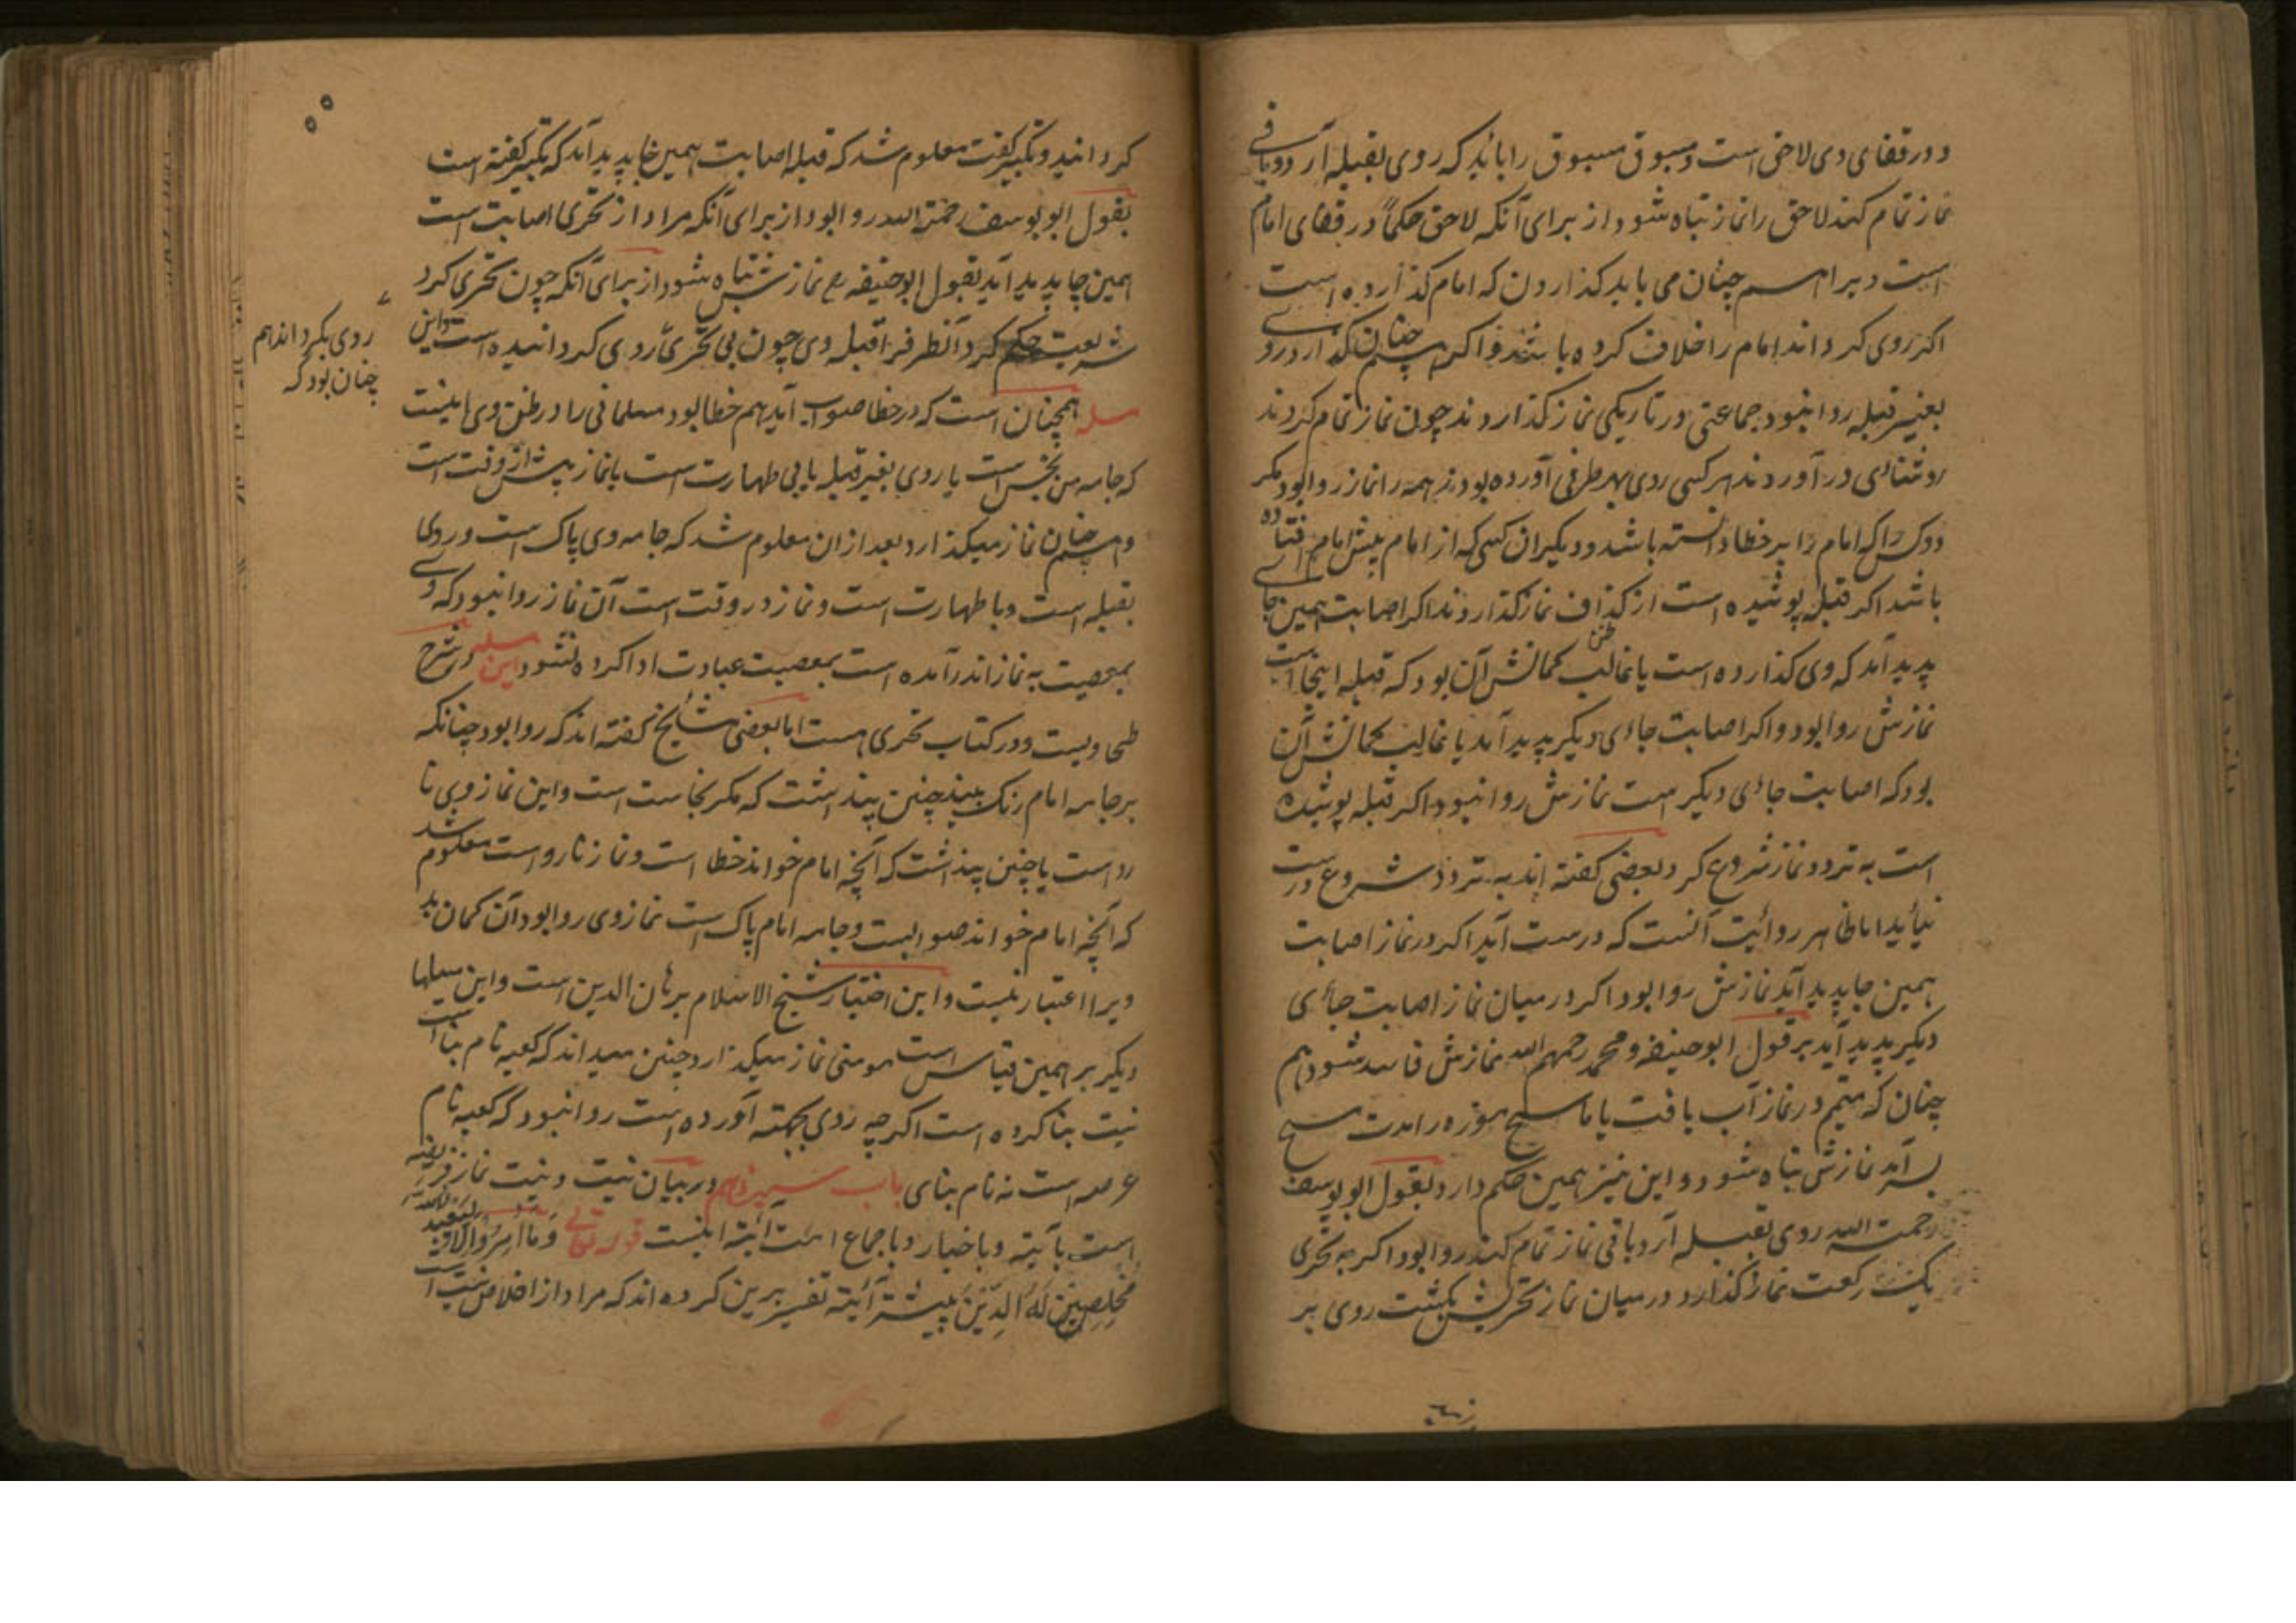 و در قفای وی لاحق است و مسبوق مسبوق را باید که روی بقبله آرد و باقی
نماز تمام کند لاحق را نماز تباه شود از برای آنکه لاحق حکماً در قفای امام
است و برا همچنان می باید کذاردن که امام کذارده است
اکر روی کرداند امام را خلاف کرده باشد و اکر همچنان کذارد روی
بغیر قبله روا نبود جماعتی در تاریکی نماز کذاردند چون نماز تمام کردند
روشنائی در آوردند هر کسی روی بهر طرفی آورده بودند همه را نماز روا بود مکر
دو کس را که امام را بر خطا دانسته باشد و دیکران کسی که از امام پیش امام افتاده
باشد اکر قبله پوشیده است از کذاف نماز کذاردند اکر اصابت همین جای
پدید آمد که وی کذارده است یا غالب ظن کمانش آن بود که قبله اینجا است
نمازش روا بود و اکر اصابت جاءی دیکر پدید آمد یا غالب کمانش آن
بود که اصابت جاءی دیکر است نمازش روا نبود اکر قبله پوشیده
است به تردد نماز شروع کرد بعضی کفته اند به تردد شروع درست
نیاید اما ظاهر روائیت آنست که درست آید اکر در نماز اصابت
همین جا پدید آید نمازش روا بود اکر در میان نماز اصابت جاءی
دیکر پدید آید بر قول ابو حنیفه و محمد رحمهم الله نمازش فاسد شود هم
چنان که متیمم در نماز آب یافت یا ماسح موزه را مدت مسح
بسر آمد نمازش تباه شود و این نیز همین حکم دارد بقول ابو یوسف
رحمت الله روی بقبله آرد باقی نماز تمام کند روا بود اکر به تحری
یک رکعت نماز کذارد در میان نماز تحریش بکشت روی بر
۵۵
کردانید و تکبیر کفت معلوم شد که قبله اصابت همین جا پدید آمد که تکبیر کفته است
بقول ابو یوسف رحمت الله روا بود از برای آنکه مراد از تحری اصابت است
همین جا پدید آید بقول ابو حنیفه رح نمازش تباه شود از برای آنکه چون تحری کرد
شریعت حکم کرد آنطرف را قبله وی چون بی تحری روی کردانیده است و این
روی بکرداند هم
چنان بود که
مسله همچنان است که در خطا صواب آید هم خطا بود مسلمانی را در ظن وی اینست
که جامه من نجس است یا روی بغیر قبله یا بی طهارت است یا نماز پیش از وقت است
و همچنان نماز میکذارد بعد از ان معلوم شد که جامه وی پاک است و روی
بقبله است و با طهارت است و نماز در وقت است آن نماز روا نبود که وی
بمعصیت به نماز اندر آمده است بمعصیت عبادت ادا کرده نشود این مسله در شرح
طحاویست و در کتاب تحری هست اما بعضی مشایخ کفته اند که روا بود چنانکه
بر جامه امام رنک بیند چنین پنداشت که مکر نجاست است و این نماز وی نا
رو است یا چنین پنداشت که آنچه امام خواند خطا است و نماز نارواست معلوم شد
که آنچه امام خواند صوابست و جامه امام پاک است نماز وی روا بود آن کمان بد
ویرا اعتبار نیست و این اختیار شیخ الاسلام برهان الدین است و این مسلها
دیکر بر همین قیاس است مومنی نماز میکذارد چنین میداند که کعبه نام بنا است
نیت بنا کرده است اکر چه روی بجهته آورده است روا نبود که کعبه نام
عرصه است نه نام بنای باب سیزدهم در بیان نیت و نیت نماز فریضه
است بآیته و باخبار و باجماع امت آیته اینست قوله تعالی وَمَا اُمِرُوا اِلَّا لِیَعْبُدُ والله
مُخْلِصِینَ لَهُ الدِّینَ بیشتر آئیته تفسیر برین کرده اند که مراد از اخلاص نیت است